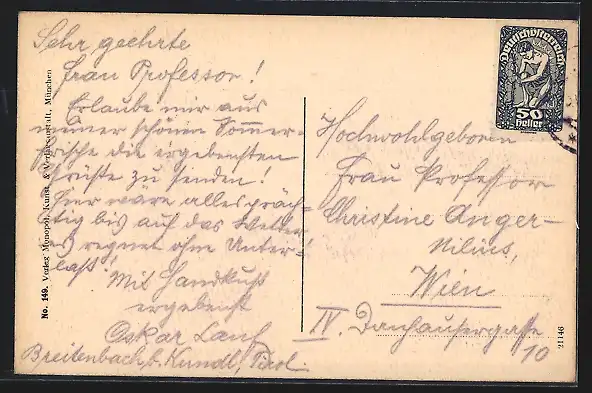 Sehr geehrte
Frau Professor!
Erlaube mir aus
meiner schönen Sommer-
frische die ergebensten
Grüße zu senden!
Hier wäre alles präch-
tig bis auf das Wetter
es regnet ohne Unter-
laß!
Mit Handkuß
ergebenst
Oskar
Breitenbach b. Kundl, Tirol
No. 149. Verlag Monopol, Kunst- & Verlagsanstalt, München
Deutschösterreich
50
heller
Hochwohlgeboren
Frau Professor
Christine Anger-
Nilius,
Wien
IV. Danhausergasse
10
21146